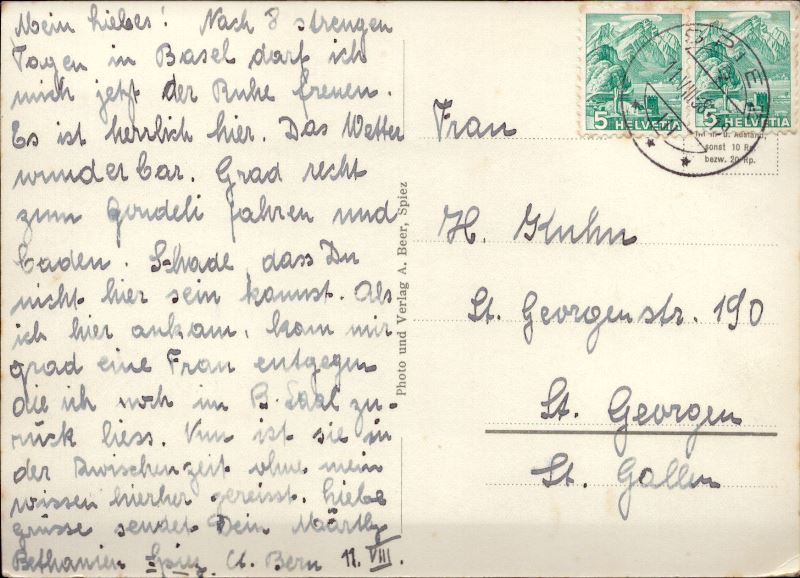 Mein Liebes! Nach 8 strengen
Tagen in Basel darf ich
mich jetzt der Ruhe freuen.
Es ist herrlich hier. Das Wetter
wunderbar. Grad recht
zum Gondeli fahren und
baden. Schade, dass Du
nicht hier sein kannst. Als
ich hier ankam, kam mir
grad eine Frau entgegen
die ich noch im B. Saal zu-
rück liess. Nun ist sie in
der Zwischenzeit ohne mein
wissen hierher gereisst. Liebe
grüsse sendet Dein Märthy
Bethanien Spiez Ct. Bern 11. VIII.
Photo und Verlag A. Beer, Spiez
5 HELVETIA
5 HELVETIA
SPIEZ
11.VIII.38
Ausland,
sonst 10 Rp.
bezw. 20 Rp.
Frau
H. Kuhn
St. Georgenstr. 190
St. Georgen
St. Gallen